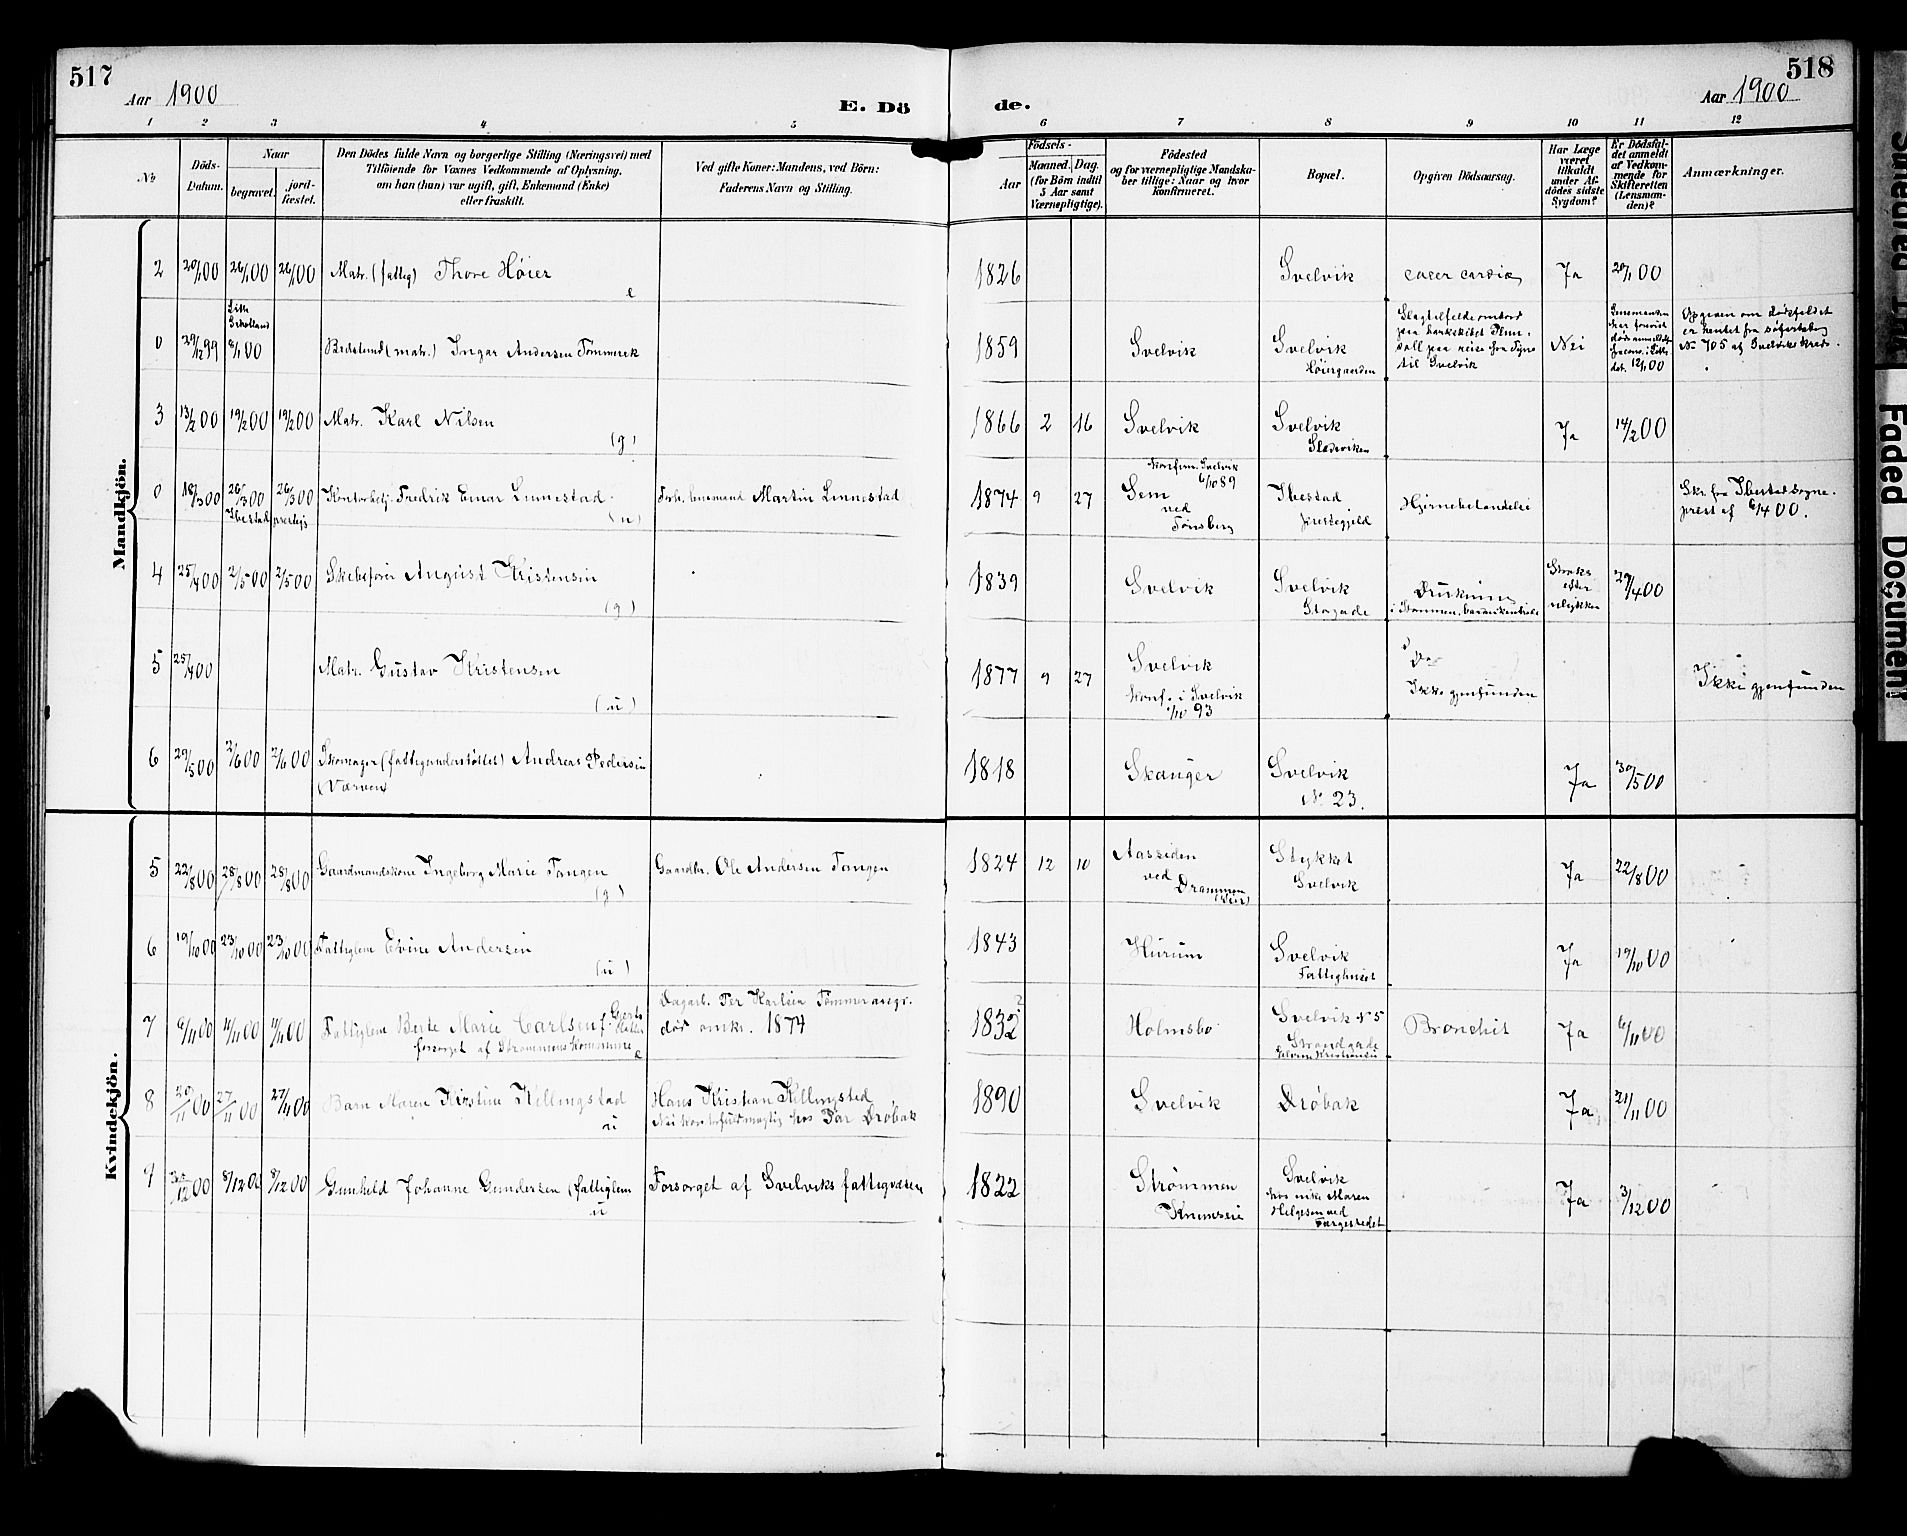 517
518
Aar 1900
E. Dö
de.
Aar 1900
1 2 3 4 5 6 7 8 9 10 11 12
№
Döds-
Datum.
Naar
begravet.
jord-
fæstet.
Den Dödes fulde Navn og borgerlige Stilling (Næringsvei) med
Tilföiende for Voxnes Vedkommende af Oplysning,
om han (hun) var ugift, gift, Enkemand (Enke)
eller fraskilt.
Ved gifte Koner: Mandens, ved Börn:
Faderens Navn og Stilling.
Födsels-
Aar
Maaned. Dag.
(for Börn indtil
5 Aar samt
Værnepligtige).
Födested
og for værnepligtige Mandska-
ber tillige: Naar og hvor
konfirmeret.
Bopæl.
Opgiven Dödsaarsag.
Har Læge
været
tilkaldt
under Af-
dödes sidste
Sygdom?
Er Dödsfal-
det anmeldt
af Vedkom-
mende for
Skifteretten
(Lensman-
den)?
Anmærkninger.
Mandkjön.
2 20/1 00 26/1 00 26/1 00 Matr. (fattig) Thore Høier e 1826 Svelvik cacer cardiæ Ja 20/1 00
0 29/12 99 8/1 00 Ingar Andersen Tømmerek 1859 Svelvik Svelvik
Høiergaarden
paa reise fra Tyne
til Svelvik
Nei
12/1 00
Opgaven om dødsfaldet
er hentet fra
№ 705 af Svelviks
3 13/2 00 19/2 00 19/2 00 Matr. Karl Nilsen (g) 1866 2 16 Svelvik Svelvik Ja 14/2 00
0 18/3 00 26/3 00 26/3 00 Fredrik Einar Linnestad (u) Martin Linnestad 1874 9 27
Ibestad
konfirm. Svelvik
6/10 89
Sem
ved
Tønsberg
Ibestad
prestegjeld
Hjernebetændelse
Skr. fra Ibestad sogne-
prest af 6/4 00.
4 25/4 00 2/5 00 2/5 00 Skibsfører August Kristensen (g) 1839 Svelvik Svelvik
Storgade
Drukning
Straks
efter
ulykken
29/4 00
5 25/4 00 Matr. Gustav Kristensen (u) 1877 9 27 Svelvik
konf. i Svelvik
1/10 93
Do
Ikke gjenfunden
Ikke gjenfunden
6 29/5 00 2/6 00 2/6 00 Skomager (fattigunderstøttet) Andreas Pedersen
(Værven)
1818 Skanger Svelvik
№ 23.
Ja 30/5 00
Kvindekjön.
5 22/8 00 28/8 00 28/8 00 Gaardmandskone Ingeborg Marie Tangen (g) Gaardbr. Ole Andersen Tangen 1824 12 10 Aassiden
ved
Drammen
(Lier)
Stykket
Svelvik
Ja 22/8 00
6 19/10 00 23/10 00 23/10 00 Fattiglem Evine Andersen (u) 1843 Hurum Svelvik
Fattighuset
Ja 19/10 00
7 6/11 00 11/11 00 11/11 00 Fattiglem Berte Marie Carlsen f. Gjerts
datter
forsørget af Strømmens kommune e
Dagarb. Per Karlsen
død omkr. 1874
1832 ? Holmsbo Svelvik № 5
Strandgade
Bronchit Ja 6/11 00
8 20/11 00 27/11 00 27/11 00 Barn Maren Kirstine Killingstad u Hans Kristian Killingstad
hos Par Drøbak
1890 Svelvik Drøbak Ja 21/11 00
9 3/12 00 8/12 00 8/12 00 Gunhild Johanne Gundersen (fattiglem u Forsørget af Svelviks fattigvæsen 1822 Strømmen
Svelvik
hos enke Maren
Helgesen ved
Færgestedet
Ja 3/12 00
Faded Document